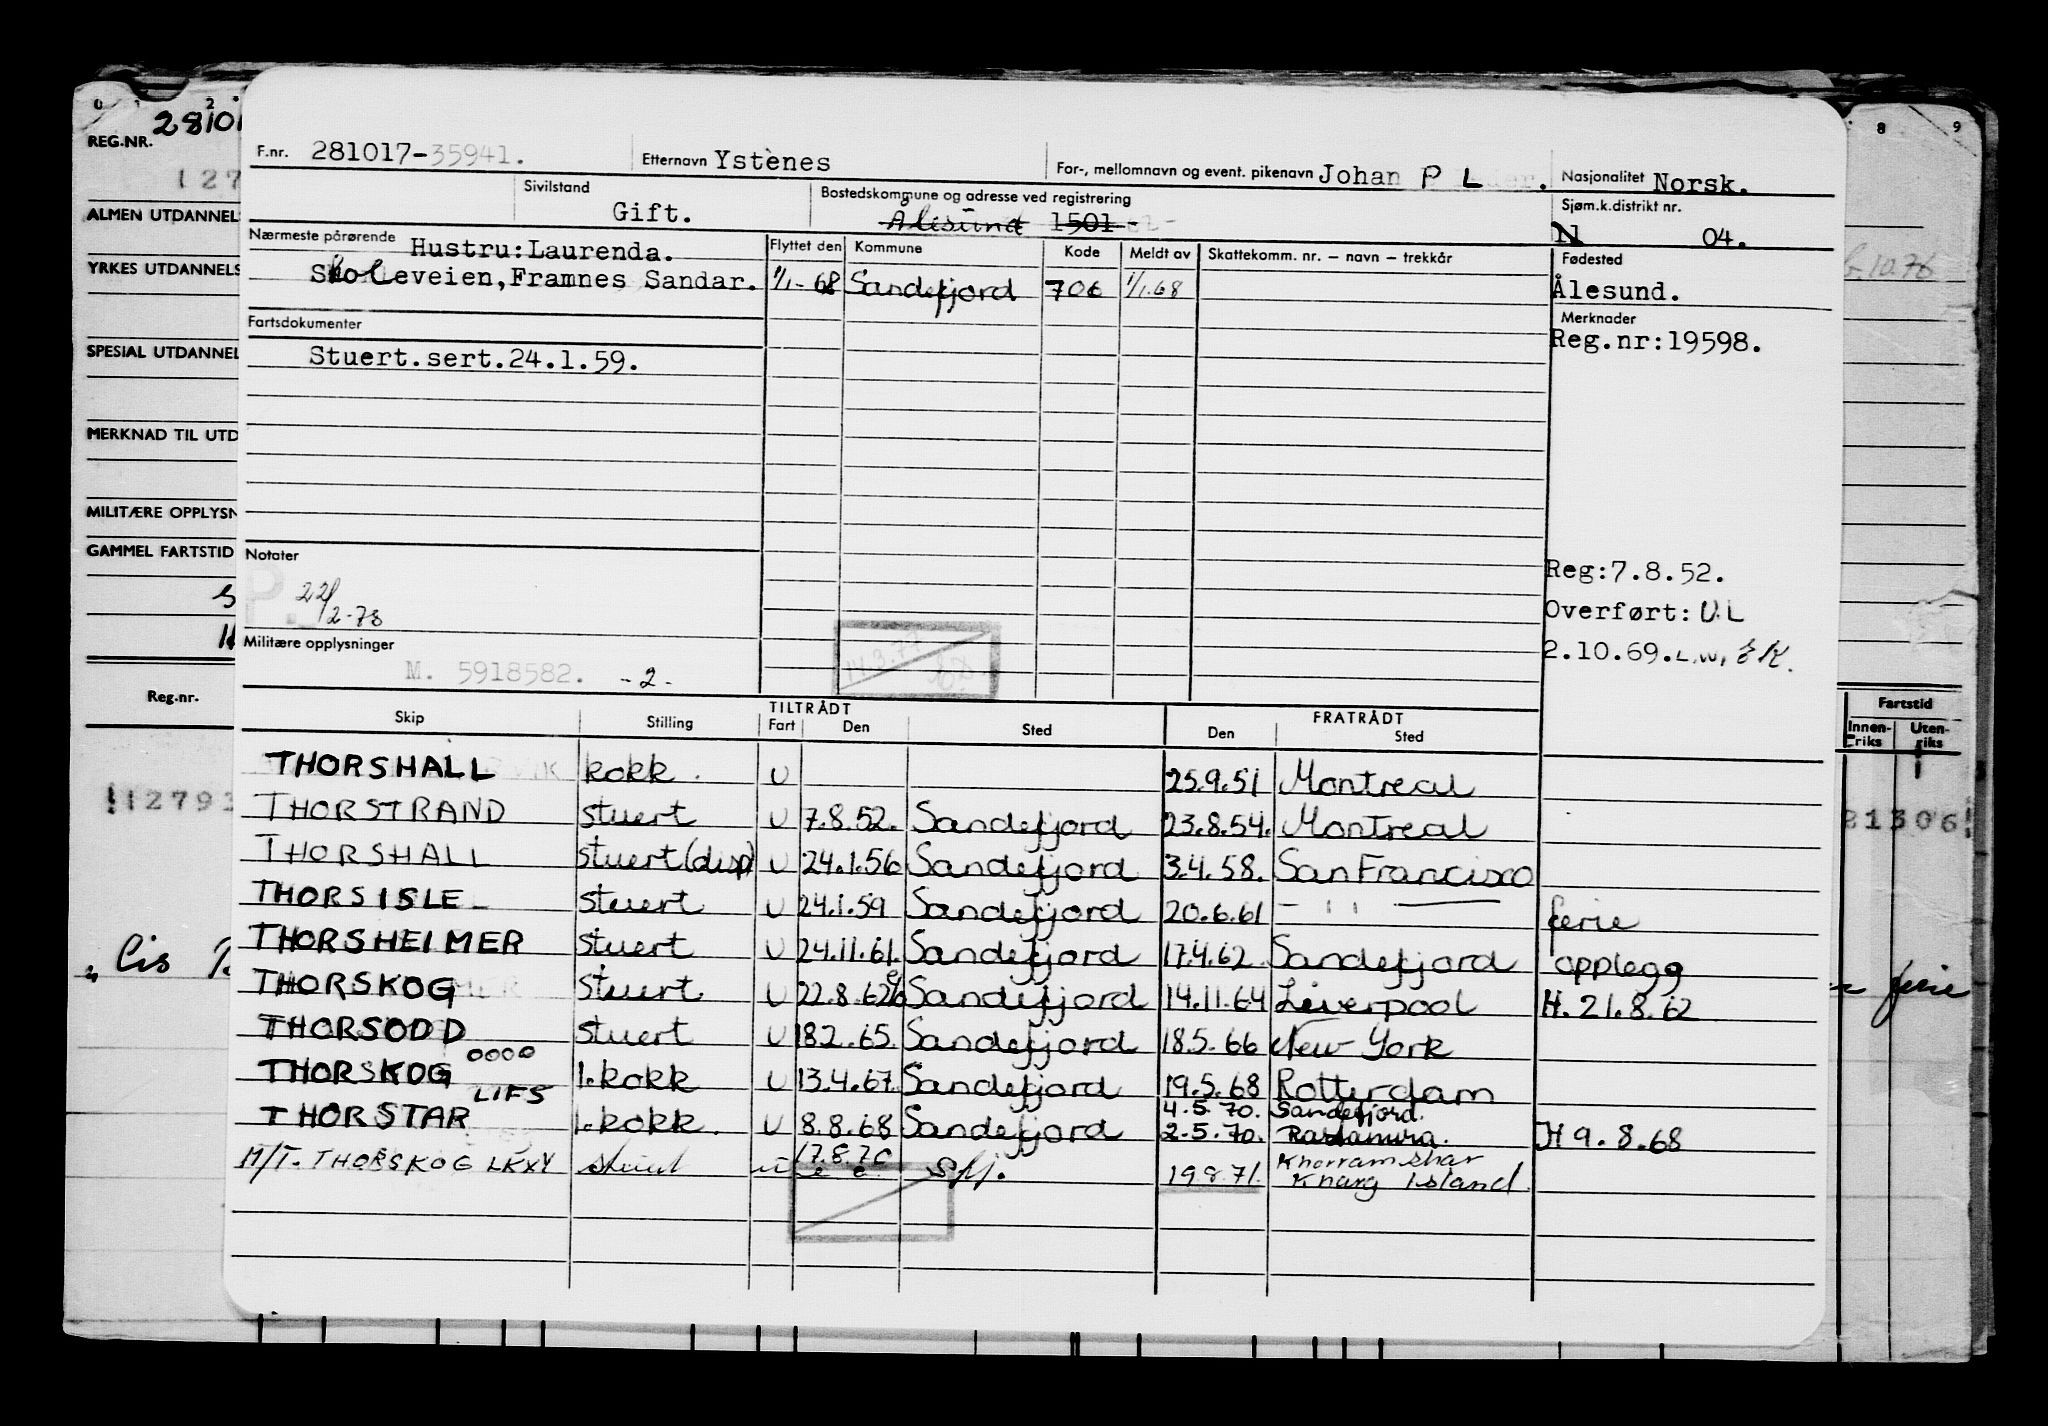 0 2 8 9
REG.NR. 28101
127
ALMEN UTDANNEL
YRKES UTDANNELS
SPESIAL UTDANNEL
MERKNAD TIL UTD
MILITÆRE OPPLYSN
GAMMEL FARTSTID
Reg.nr.
Fartstid
Innen-riks Uten-riks
12793
81306
Cis
ferie
F.nr. 281017-35941. Etternavn Ystènes For-, mellomnavn og event. pikenavn Johan P L Nasjonalitet Norsk.
Sivilstand Gift. Bostedskommune og adresse ved registrering Ålesund 1501 Sjøm.k.distrikt nr. N 04.
Nærmeste pårørende Hustru:Laurenda. Flyttet den Kommune Kode Meldt av Skattekomm. nr. – navn – trekkår Fødested
Skoleveien,Framnes Sandar. 1/1-68 Sandefjord 706 1/1.68 Ålesund.
Fartsdokumenter Merknader
Stuert.sert.24.1.59. Reg.nr:19598.
Notater Reg:7.8.52.
22/2-78 Overført: U.L
Militære opplysninger 2.10.69. L.W. EK.
M. 5918582. -2-
14.3.77
TILTRÅDT FRATRÅDT
Skip Stilling Fart Den Sted Den Sted
THORSHALL kokk. U 25.9.51 Montreal
THORSTRAND stuert U 7.8.52. Sandefjord 23.8.54. Montreal
THORSHALL stuert(disp) U 24.1.56 Sandefjord 3.4.58. San Francisco
THORSISLE stuert U 24.1.59 Sandefjord 20.6.61 – " – ferie
THORSHEIMER stuert U 24.11.61. Sandefjord 17.4.62 Sandefjord opplegg
THORSKOG stuert. U 22.8.62 Sandefjord 14.11.64 Liverpool H. 21.8.62
THORSODD stuert U 18.2.65. Sandefjord 18.5.66 New York
THORSKOG OOOO 1.kokk U 13.4.67. Sandefjord 19.5.68 Rotterdam
LIFS 4.5.70. Sandefjord.
THORSTAR 1.kokk. U 8.8.68 Sandefjord 2.5.70. Rastanura. H 9.8.68
M/T. THORSKOG LKXY stuert u 17.8.70 Sfj. 19.8.71. Khorramshar
Kharg Island